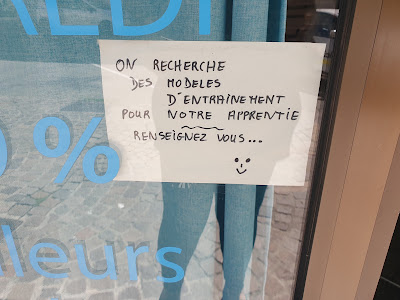 ON RECHERCHE
DES MODELES
D'ENTRAINEMENT
POUR NOTRE APPRENTIE
RENSEIGNEZ VOUS...
%
leurs